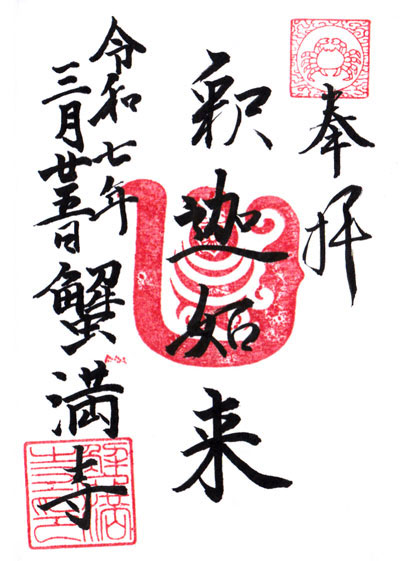 奉拝
釈迦如来
令和七年
三月廿五日
蟹満寺